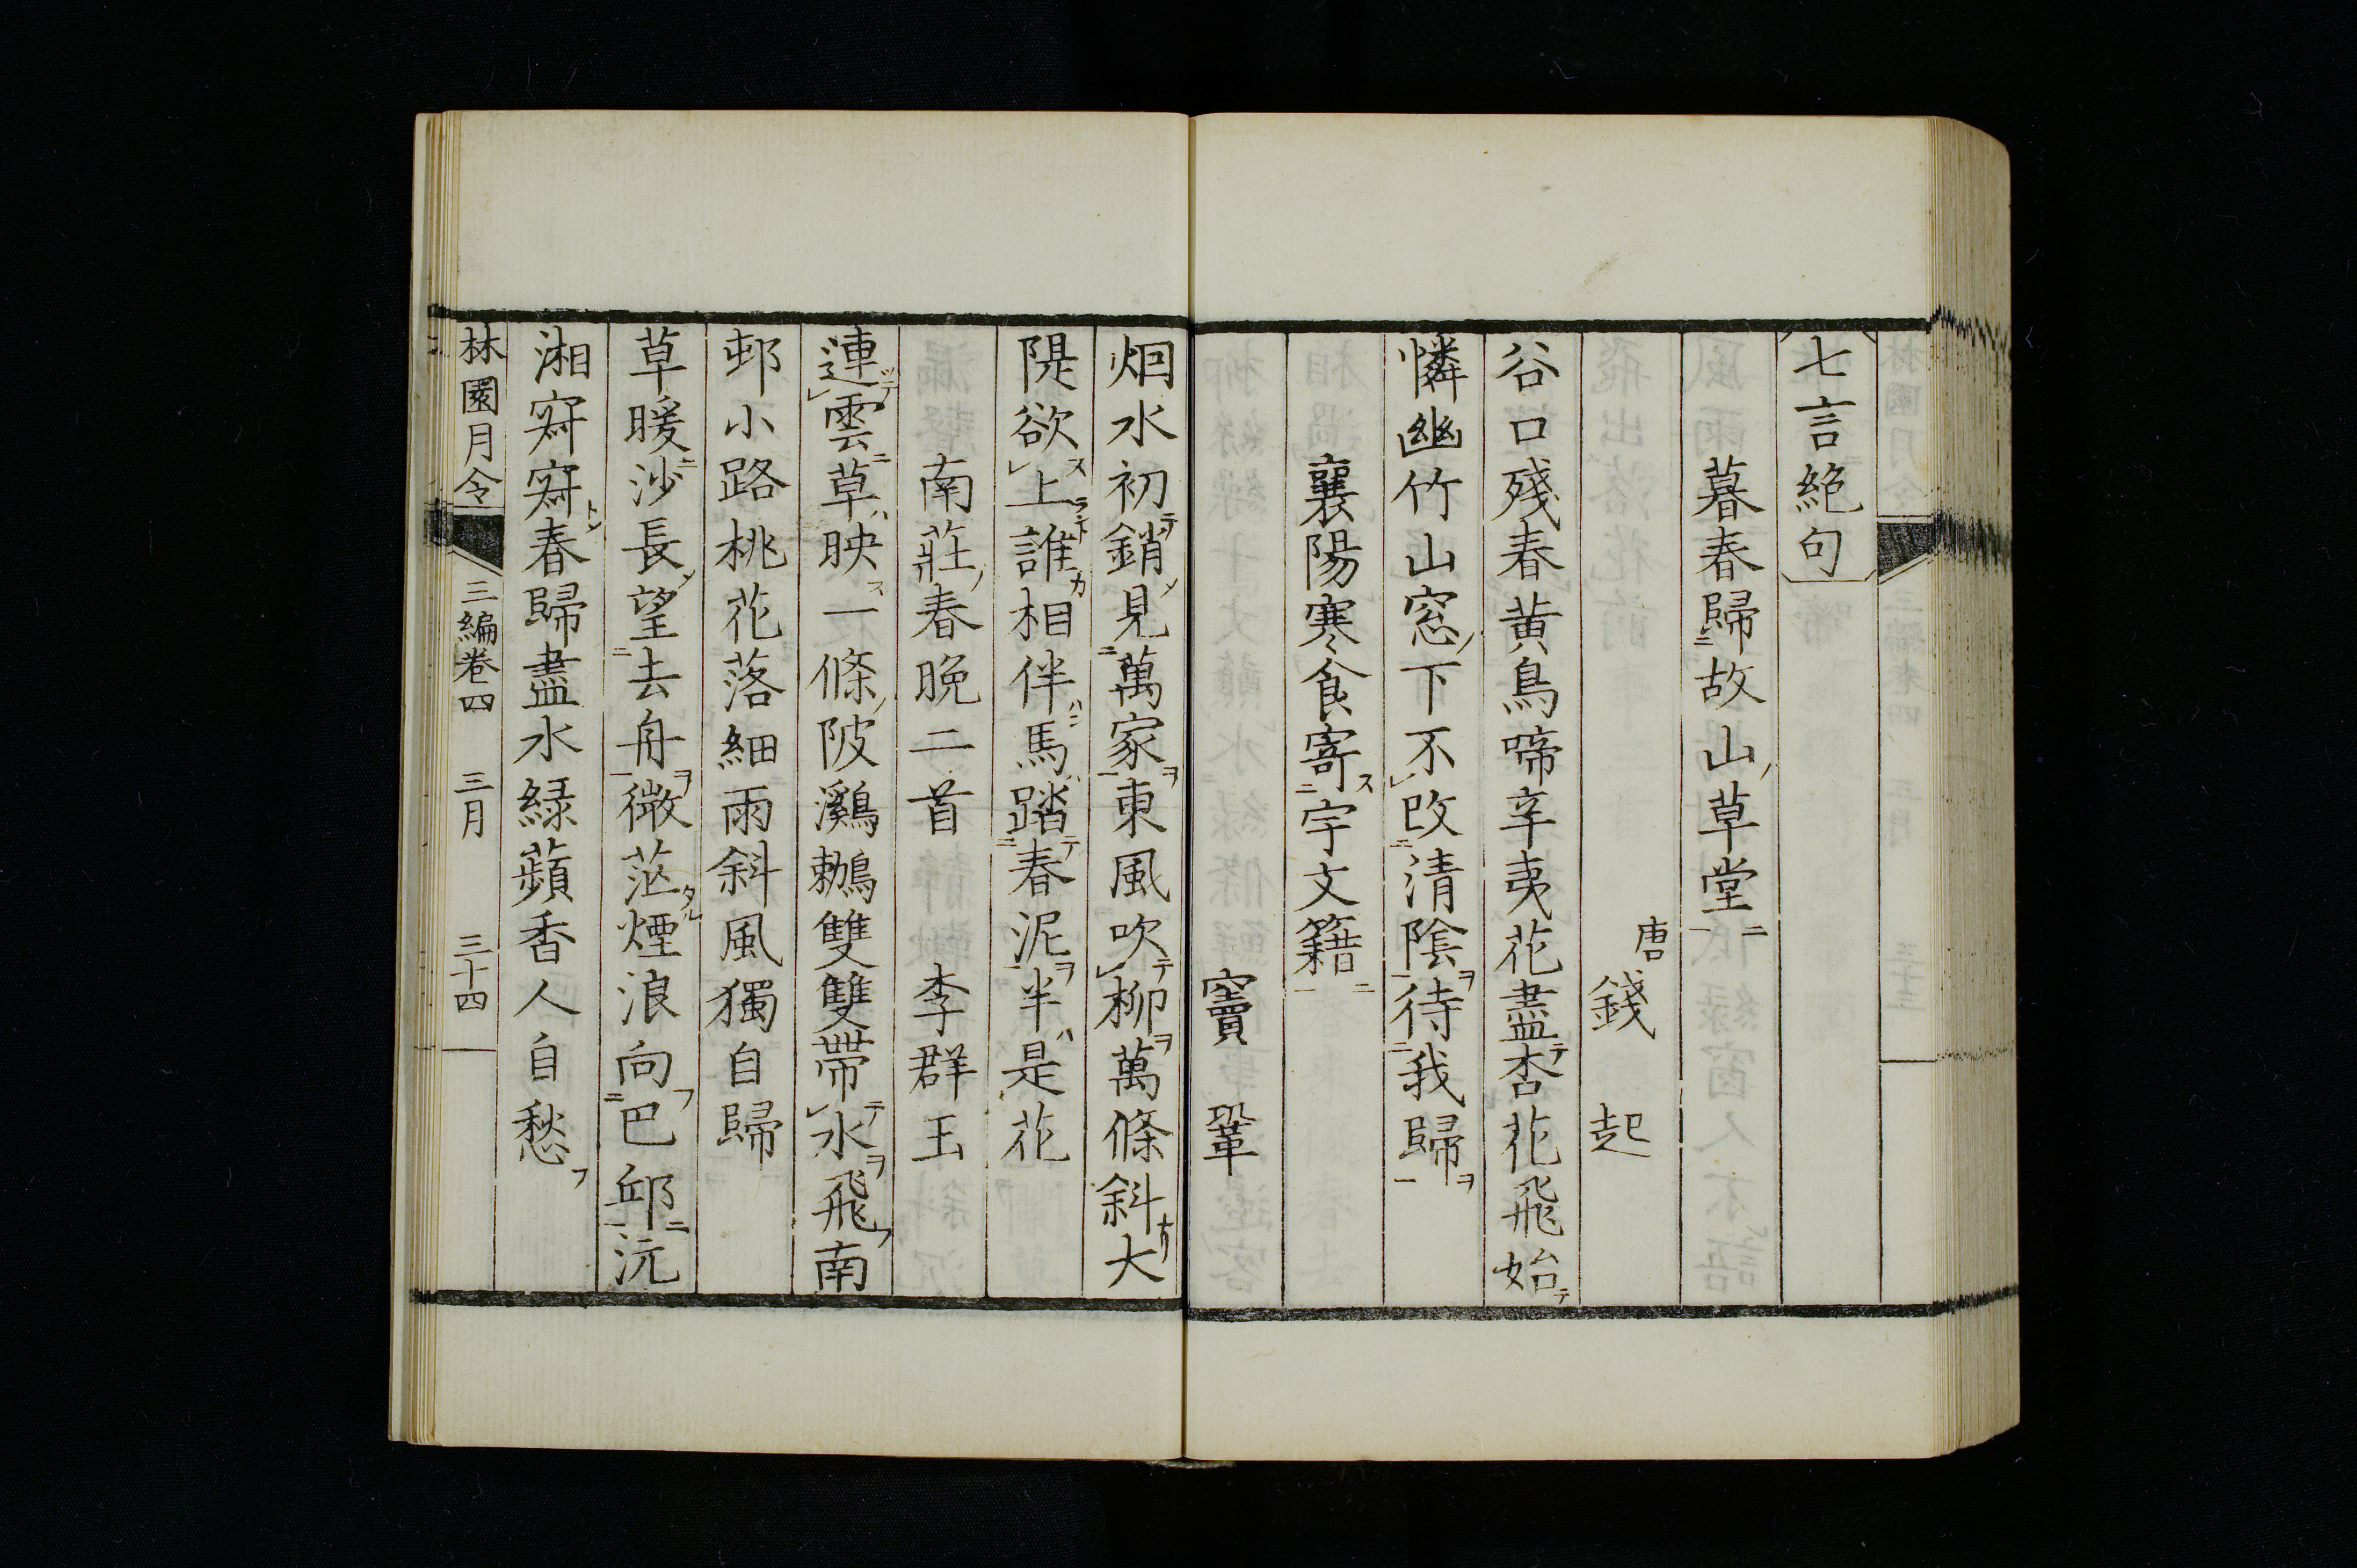 七言絶句
暮春歸故山草堂
唐 錢起
谷口殘春黄鳥啼辛夷花盡杏花飛始
憐幽竹山窓下不改清陰待我歸
襄陽寒食寄宇文籍
竇鞏
烟水初銷見萬家東風吹柳萬條斜大
隄欲上誰相伴馬踏春泥半是花
南莊春晩二首 李群玉
連雲草映一條陂鸂鶒雙雙帶水飛南
邨小路桃花落細雨斜風獨自歸
草暖沙長望去舟微茫煙浪向巴邱沅
湘寂寂春歸盡水緑蘋香人自愁
林園月令 三編卷四 三月 三十四